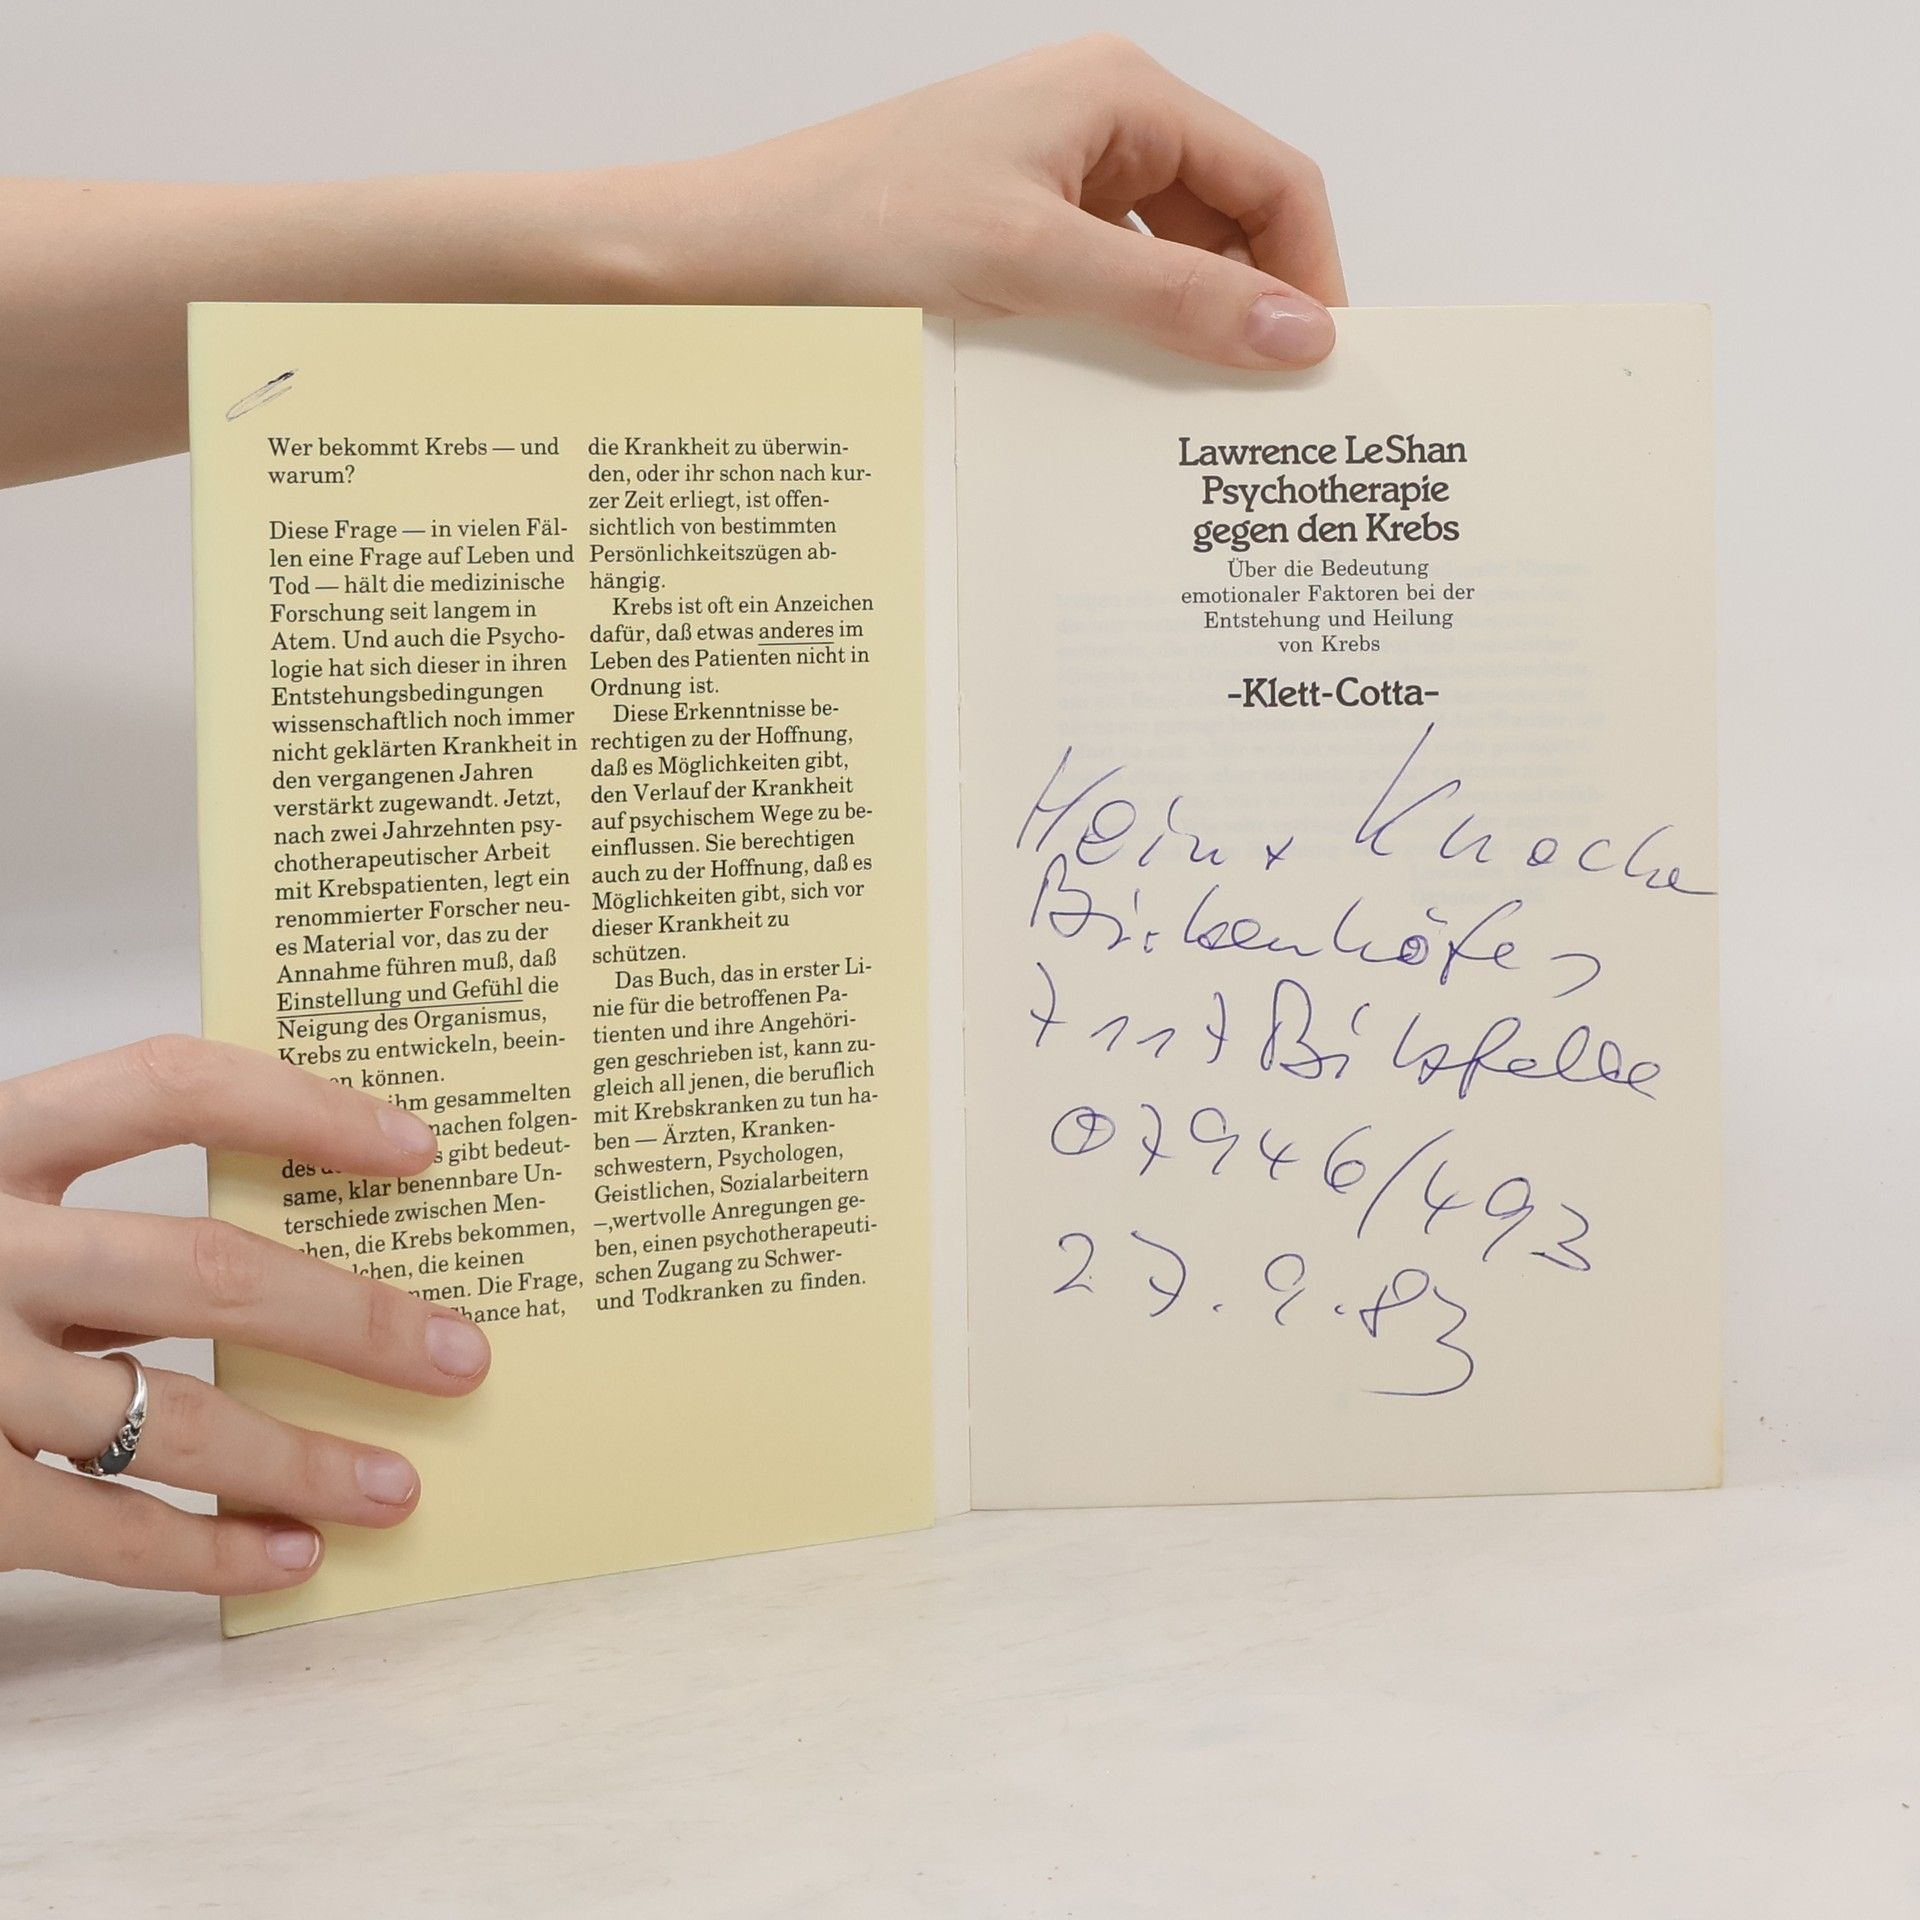 Wer bekommt Krebs — und
warum?
Diese Frage — in vielen Fäl-
len eine Frage auf Leben und
Tod — hält die medizinische
Forschung seit langem in
Atem. Und auch die Psycho-
logie hat sich dieser in ihren
Entstehungsbedingungen
wissenschaftlich noch immer
nicht geklärten Krankheit in
den vergangenen Jahren
verstärkt zugewandt. Jetzt,
nach zwei Jahrzehnten psy-
chotherapeutischer Arbeit
mit Krebspatienten, legt ein
renommierter Forscher neu-
es Material vor, das zu der
Annahme führen muß, daß
Einstellung und Gefühl die
Neigung des Organismus,
Krebs zu entwickeln, beein-
können.
ihm gesammelten
machen folgen-
des gibt bedeut-
same, klar benennbare Un-
terschiede zwischen Men-
die Krebs bekommen,
die keinen
Die Frage,
hat,
die Krankheit zu überwin-
den, oder ihr schon nach kur-
zer Zeit erliegt, ist offen-
sichtlich von bestimmten
Persönlichkeitszügen ab-
hängig.
Krebs ist oft ein Anzeichen
dafür, daß etwas anderes im
Leben des Patienten nicht in
Ordnung ist.
Diese Erkenntnisse be-
rechtigen zu der Hoffnung,
daß es Möglichkeiten gibt,
den Verlauf der Krankheit
auf psychischem Wege zu be-
einflussen. Sie berechtigen
auch zu der Hoffnung, daß es
Möglichkeiten gibt, sich vor
dieser Krankheit zu
schützen.
Das Buch, das in erster Li-
nie für die betroffenen Pa-
tienten und ihre Angehöri-
gen geschrieben ist, kann zu-
gleich all jenen, die beruflich
mit Krebskranken zu tun ha-
ben — Ärzten, Kranken-
schwestern, Psychologen,
Geistlichen, Sozialarbeitern
–,wertvolle Anregungen ge-
ben, einen psychotherapeuti-
schen Zugang zu Schwer-
und Todkranken zu finden.
Lawrence LeShan
Psychotherapie
gegen den Krebs
Über die Bedeutung
emotionaler Faktoren bei der
Entstehung und Heilung
von Krebs
-Klett-Cotta-
Knoche
7117
07946/493
27.9.83